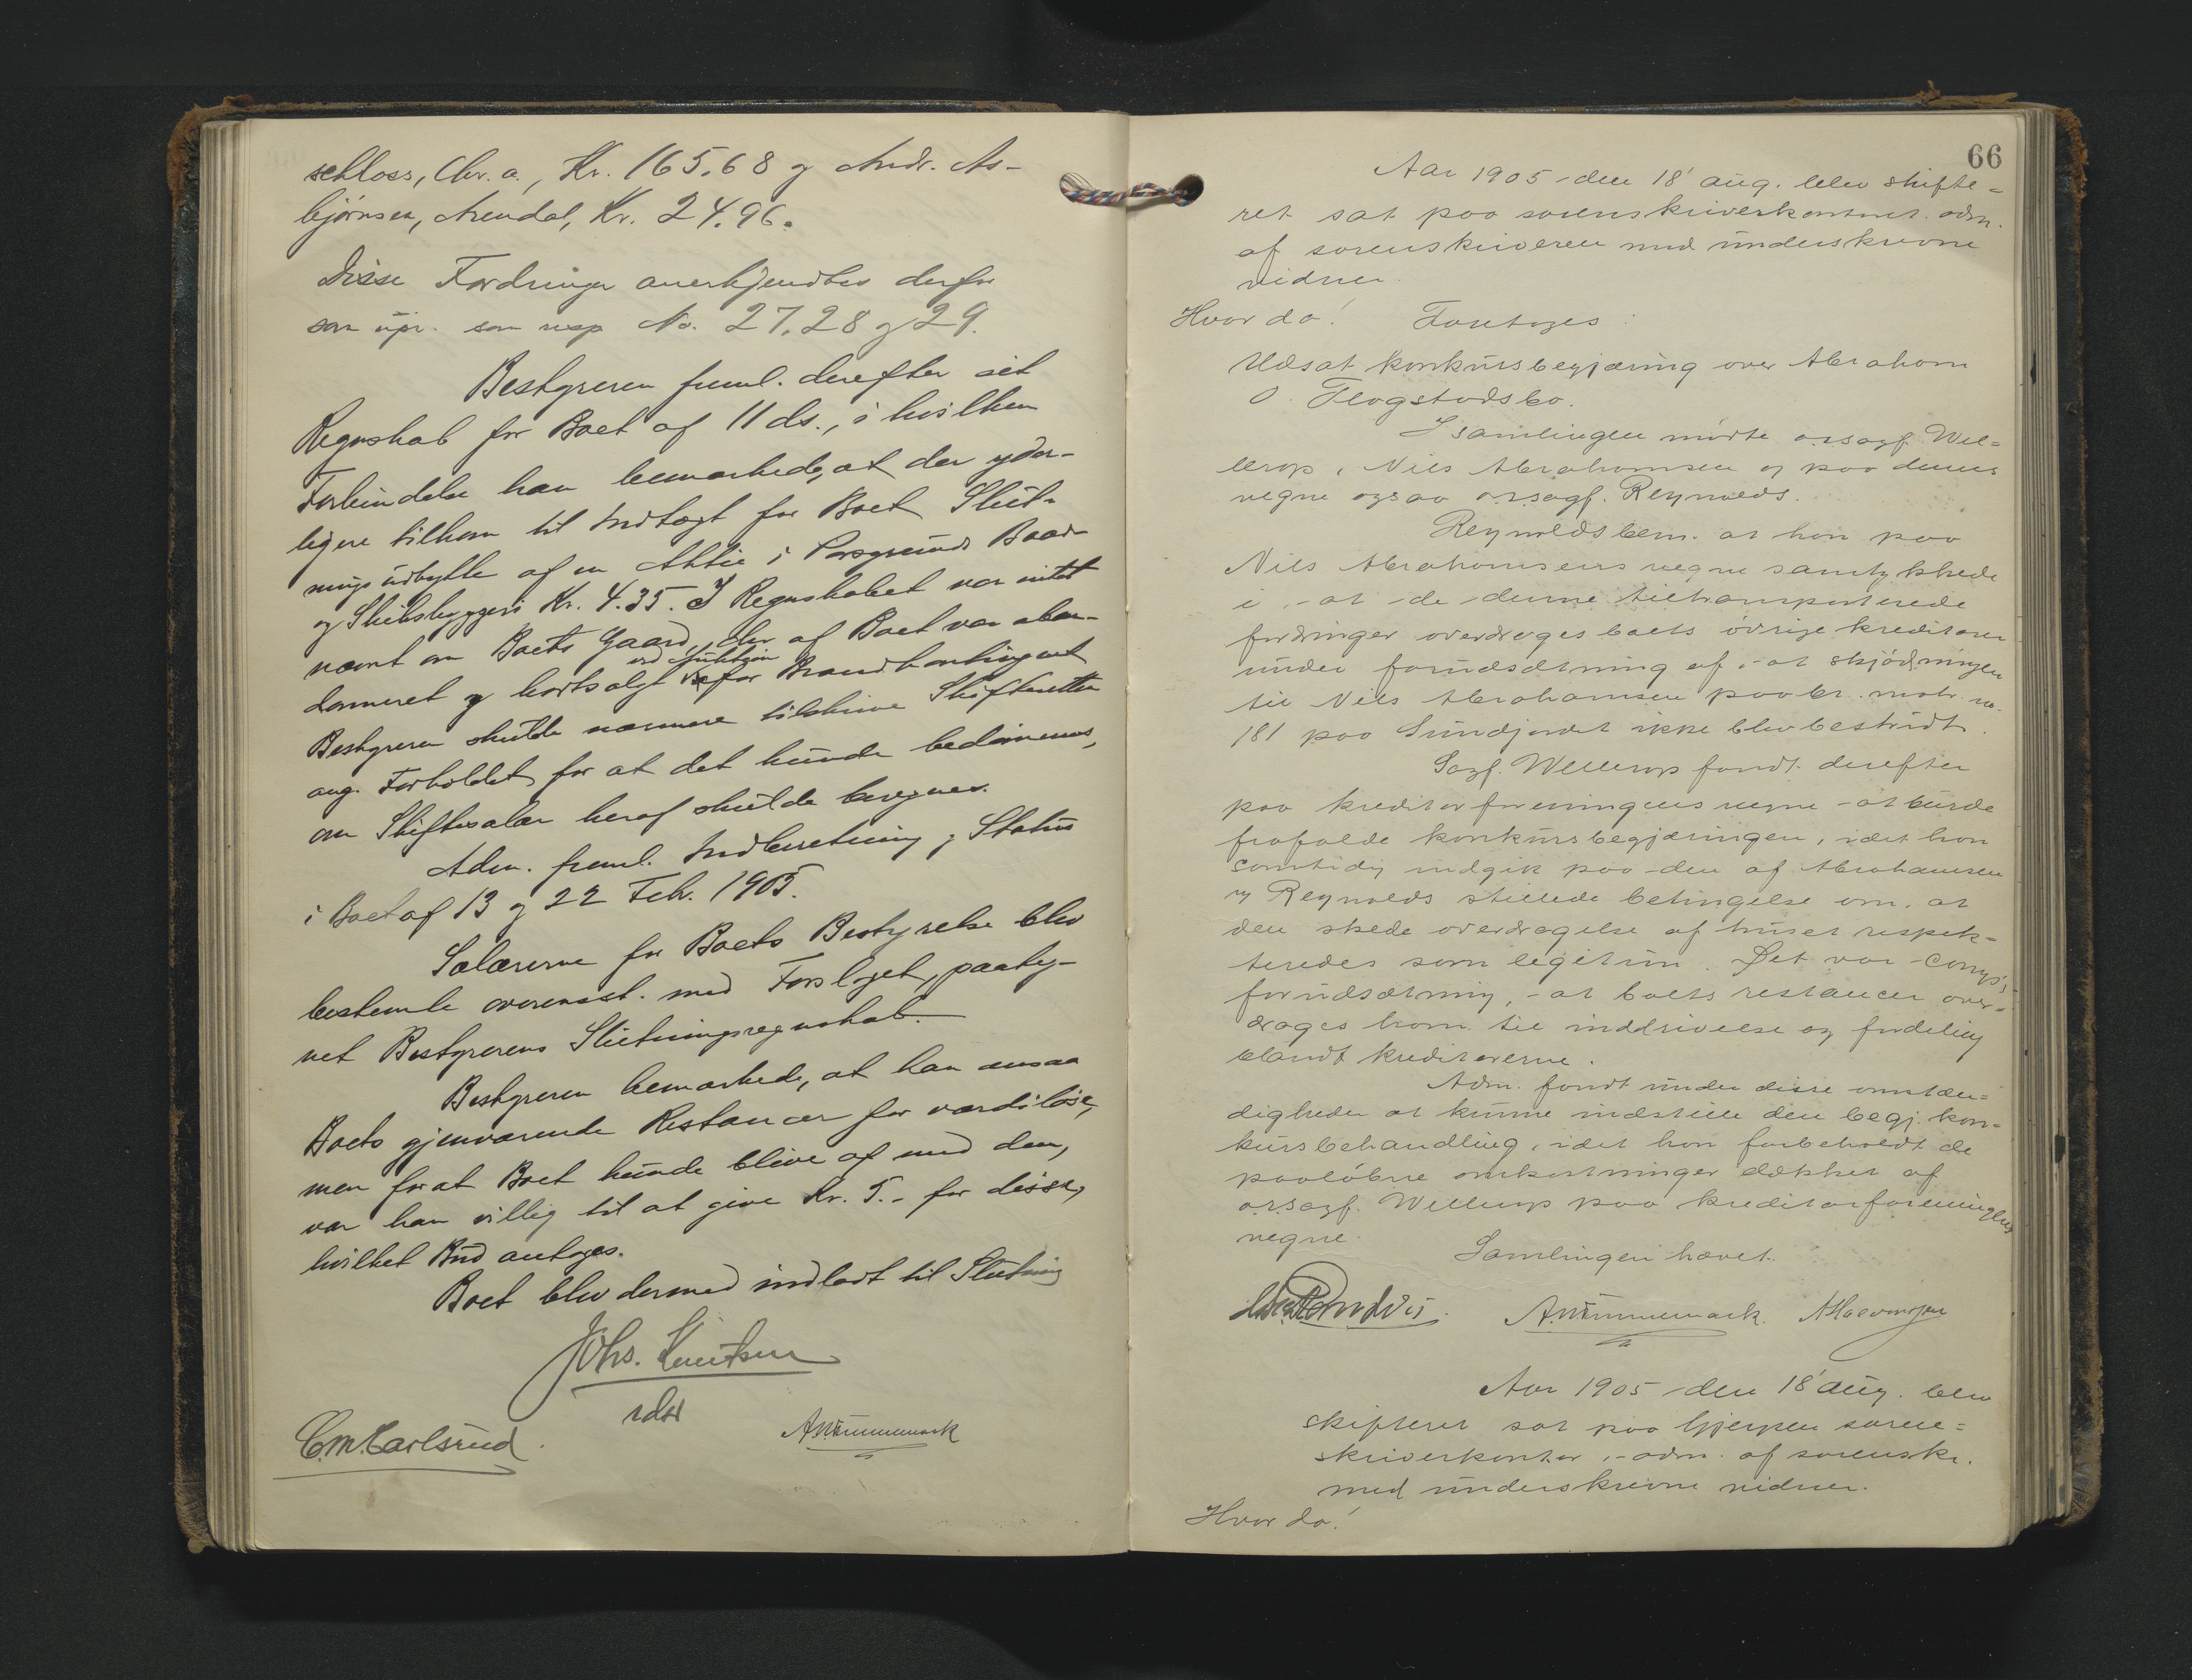 schloss, Chr.a., Kr. 165.68 og Andr. As-
bjørnsen, Arendal, Kr. 24.96.
Disse Fordringer anerkjendtes derfor
som upr. som resp No. 27, 28 og 29.
Bestyreren freml. derefter sit
Regnskab for Boet af 11 ds., i hvilken
Forbindelse han bemærkede, at der yder-
ligere tilkom til Indtægt for Boet Slut-
ningsudbytte af en Aktie i Porsgrunds Baad-
og Skibsbyggeri Kr. 4.35. I Regnskabet var intet
nævnt om Boets Gaard, der af Boet var aban-
donneret og bortsolgt ved Auktion for Brandkontingent
Bestyreren skulde nærmere tilskrive Skifteretten
ang. Forholdet, for at det kunde bedømmes,
om Skiftesalær heraf skulde beregnes.
Adm. freml. Indberetning og Status
i Boet af 13 og 22 Febr. 1905.
Salærerne for Boets Bestyrelse blev
bestemte overensst. med Forslaget, paateg-
net Bestyrerens Slutningsregnskab.
Bestyreren bemærkede, at han ansaa
Boets gjenværende Restancer for værdiløse,
men for at Boet kunde blive af med dem,
var han villig til at give Kr. 5.- for disse,
hvilket Bud antoges.
Boet blev dermed indladt til Slutning
Johs. Knutsen
C.M. Carlsrud.
A. Nummemark
66
Aar 1905 den 18' aug. blev skifte=
ret sat paa sorenskriverkontoret adm.
af sorenskriveren med underskrevne
vidner.
Hvor da! Foretoges:
Udsat konkursbegjæring over Abraham
O. Flogstads bo.
I samlingen mødte o.r.sagf. Wel=
lerop, Niels Abrahamsen og paa dennes
vegne ogsaa o.r.sagf. Reynolds.
Reynolds bem. at han paa
Niels Abrahamsens vegne samtykkede
i, at de denne tiltransporterede
fordringer overdrages boets øvrige kreditorer
under forudsætning af, at skjødningen
til Niels Abrahamsen paa br. matr. no.
181 paa Sundjordet ikke blev bestridt.
Sagf. Wellerop fandt derefter
paa kreditorforeningens vegne at burde
frafalde konkursbegjæringen, idet han
samtidig indgik paa den af Abrahamsen
og Reynolds stillede betingelse om, at
den skede overdragelse af huset respek=
teredes som legitim. Det var
forudsætning, at boets restancer over=
drages ham til inddrivelse og fordeling
blandt kreditorerne.
Adm. fandt under disse omstæn=
digheder at kunne indstille den begj. kon=
kursbehandling, idet han forbeholdt de
paaløbne omkostninger dækket af
o.r.sagf. Wellerop paa kreditorforeningens
vegne.
Samlingen hævet.
A. Nummemark. A Halvorsen
Aar 1905 den 18' aug. blev
skifteret sat paa Gjerpen soren=
skriverkontor, adm. af sorenskr.
med underskrevne vidner.
Hvor da!